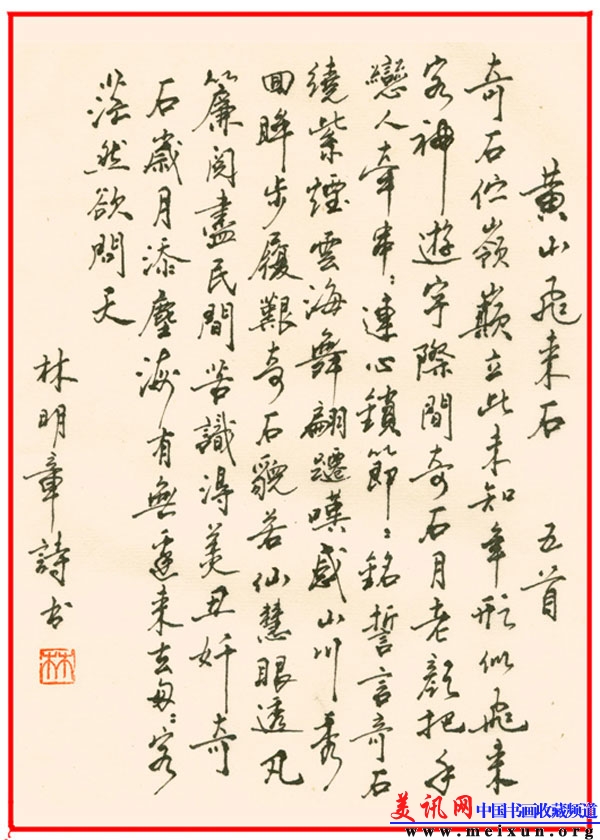 黄山飛来石 五首
奇石伫嶺巔立此未知年形似飛来
客神遊宇際間奇石月老顔把手
戀人牽串々連心鎖節々銘誓言奇石
繞紫煙雲海舞翩躚嘆感山川秀
回眸步履艱奇石貌若仙慧眼透凡
簾閲盡民間苦識得美丑奸奇
石歲月添塵海有無邊来去匆々客
茫然欲問天
林明章詩书
林
美讯网 中国书画收藏频道
www.meixun.org